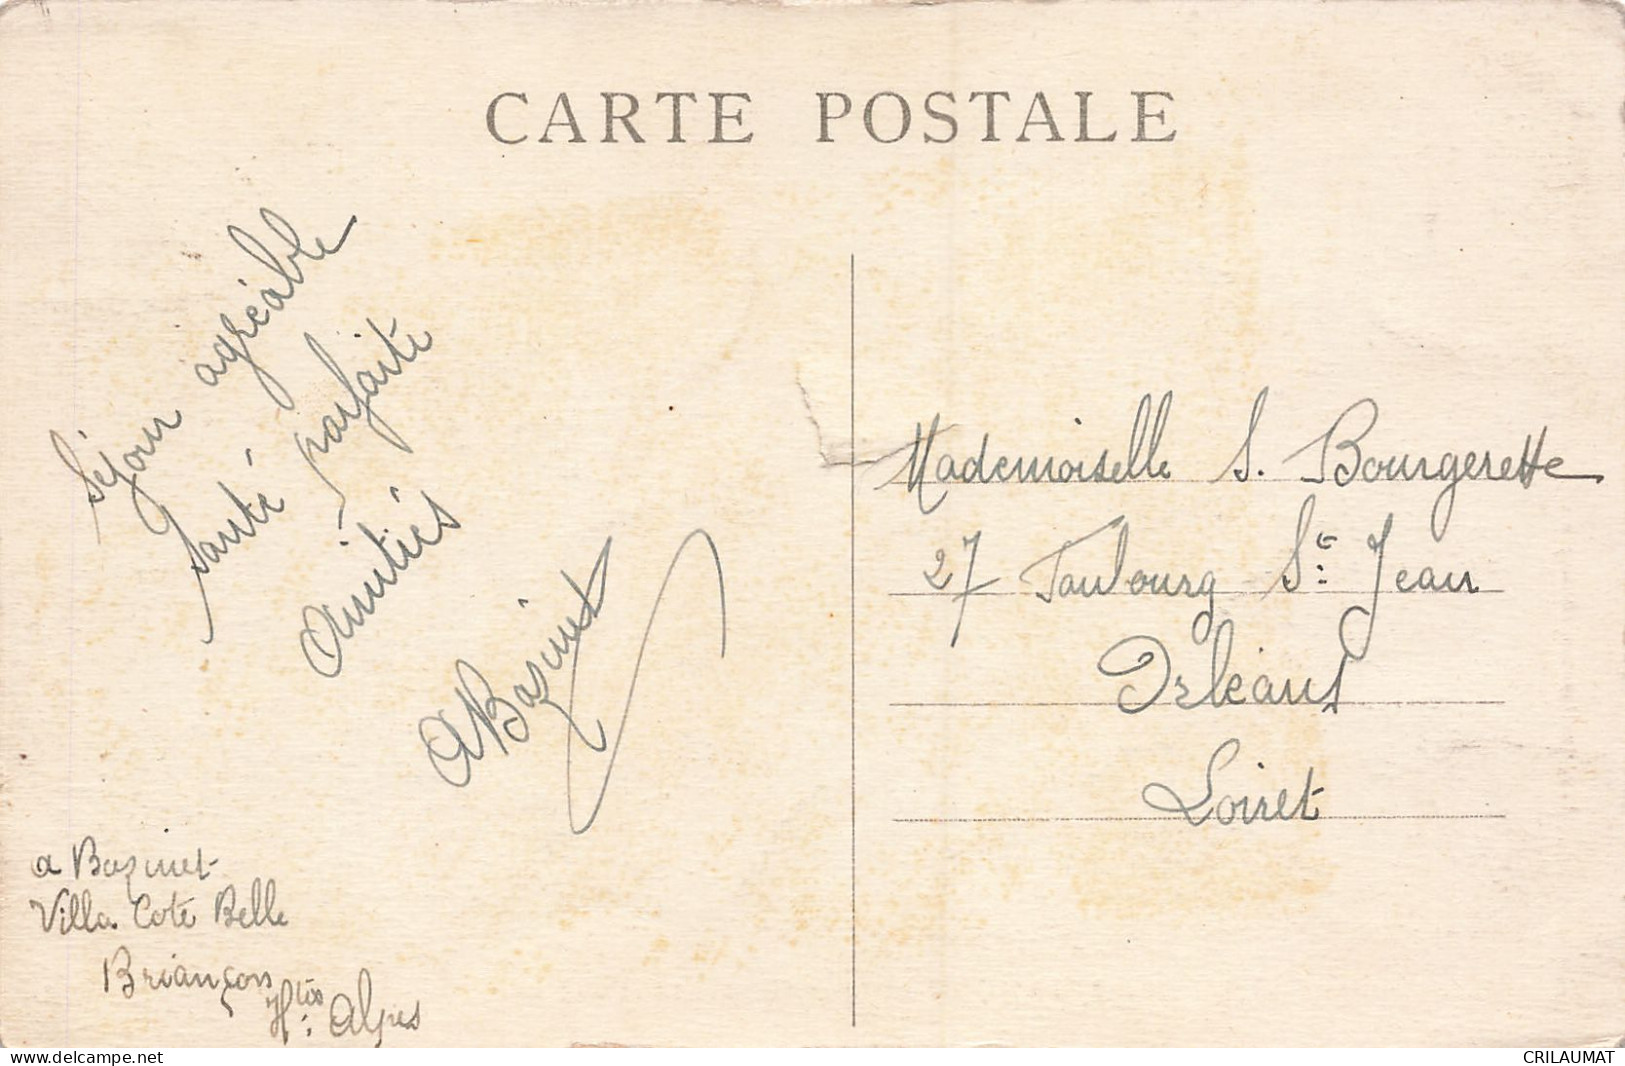 CARTE POSTALE
Séjour agréable
Santé parfaite
Amitiés
A Bazinet
a Bazinet
Villa Cote Belle
Briançon
Htes Alpes
Mademoiselle S. Bourgerette
27 Faubourg St Jean
Orléans
Loiret
www.delcampe.net
CRILAUMAT